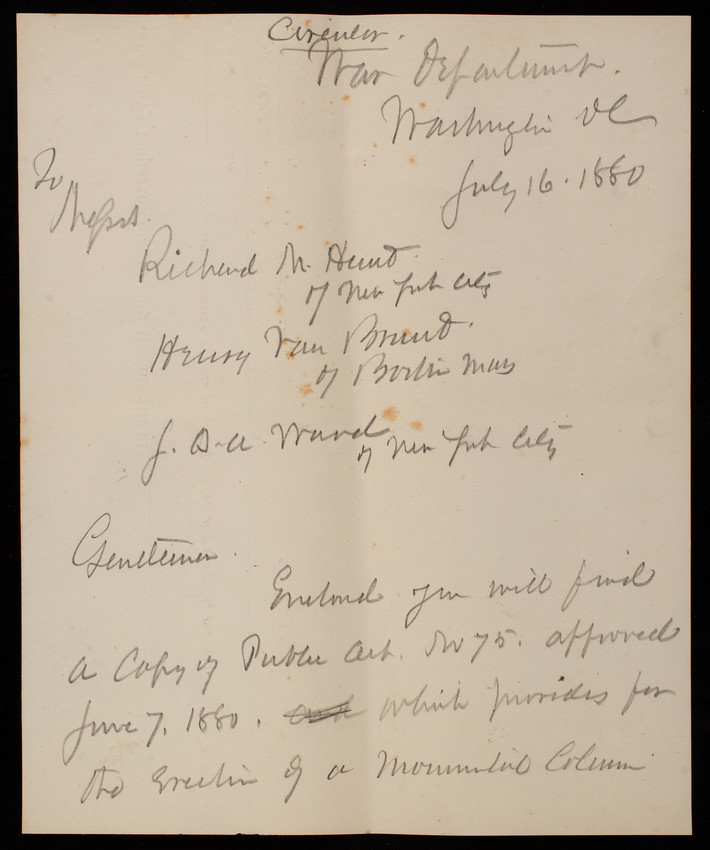 Circular.
War Department.
Washington DC
July 16. 1880
To
Messrs.
Richard M. Hunt.
of New York City
Henry Van Brunt.
of Boston Mass
J. Q. A. Ward
of New York City
Gentlemen.
Enclosed you will find
a Copy of Public Act. No 75. approved
June 7. 1880. and which provides for
the Erection of a Monumental Column